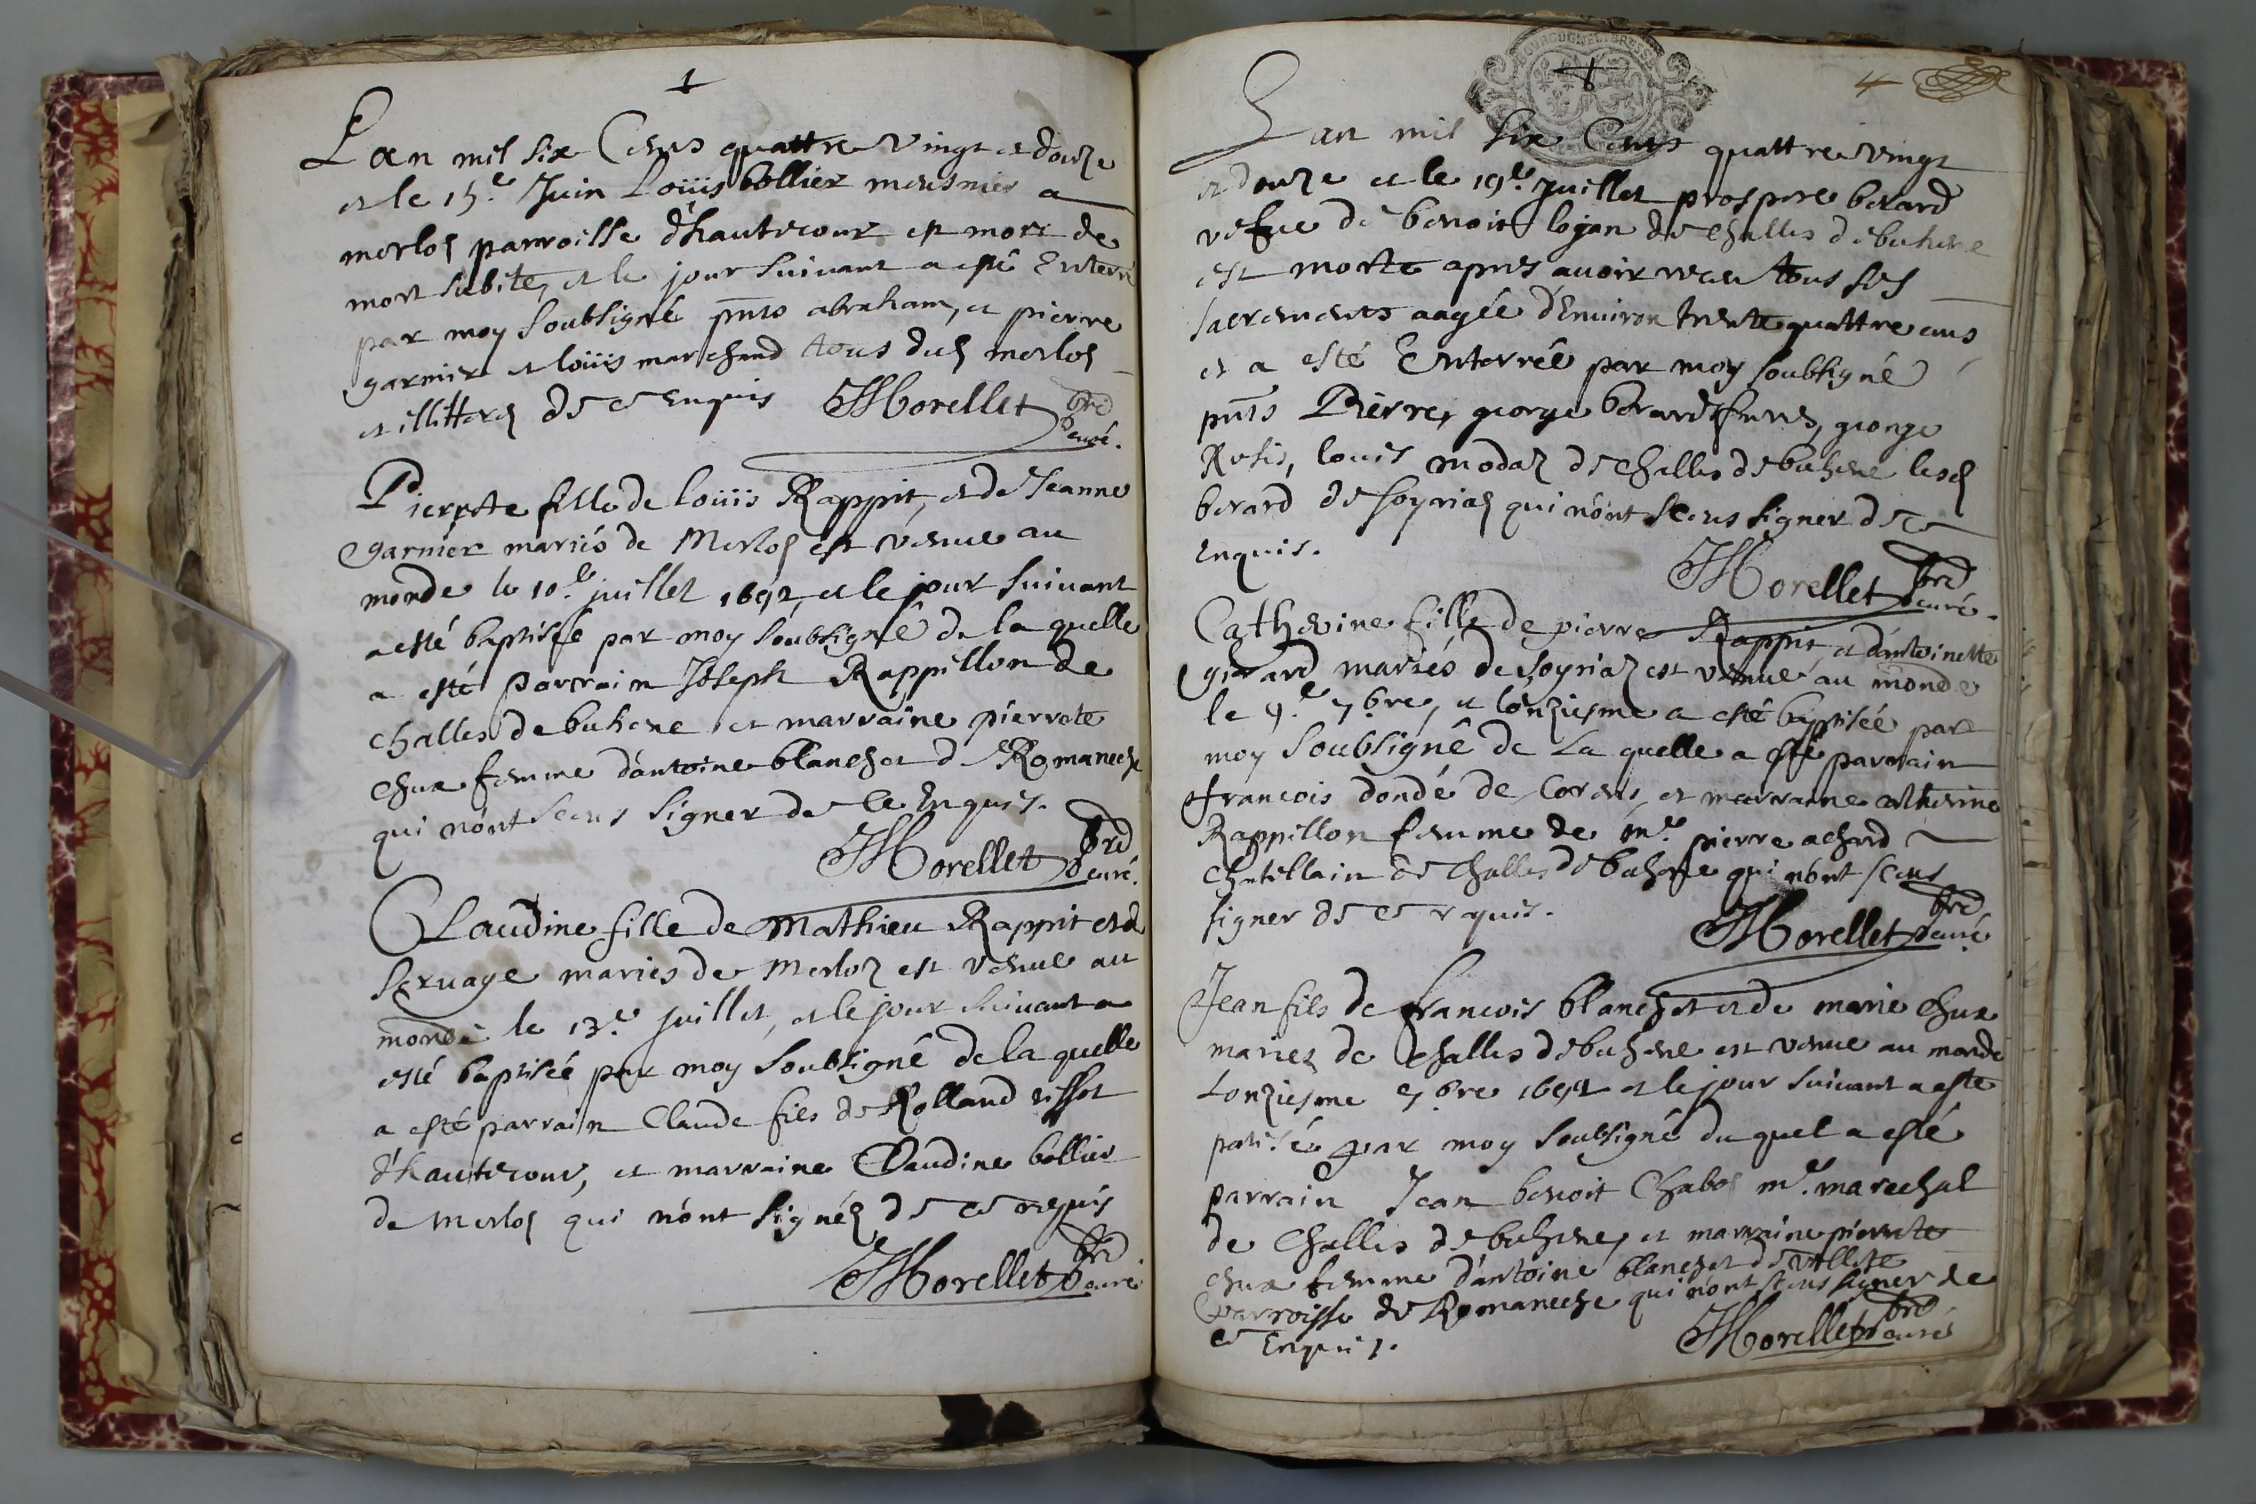 L'an mil six Cens quattre Vingt et douze
et le 15.e Juin Loüis bollier meusnier a
merlos parroisse d'hautecour est mort de
mort subite, et le jour suivant a esté Enterré
par moy soubsigné pnts abraham, et pierre
garnier et loüis marchand tous duds merlos
et illitterés de ce Enquis JMorellet pbre
curé.
Pierrete fille de loüis Rappit, et de Jeanne
garnier mariés de Merlos est venue au
monde le 10.e juillet 1692, et le jour suivant
a esté baptisée par moy soubsigné de la quelle
a esté parrain Joseph Rappillon de
challes de buhene et marraine pierrete
chux femme d'antoine blanchet de Romaneche
qui n'ont sceus signer de ce Enquis.
JMorellet pbre
curé.
Claudine fille de Mathieu Rappit et de
servage mariés de Merloz est venue au
monde le 13.e juillet, et le jour suivant a
esté baptisée par moy soubsigné de la quelle
a esté parrain Claude fils de Rolland
d'hautecour, et marraine Claudine bollier
de merlos qui n'ont signés de ce requis
JMorellet pbre
curé
4
L'an mil six Cents quattre vingt
et douze et le 19.e juillet prospere berard
vefue de benoit lojan de challes de buhene
est morte apres auoir receu tous ses
sacrements aagée d'Enuiron trente quattre ans
et a esté Enterrée par moy soubsigné
pnts Pierre, george berard freres, george
louis modaz de challes de buhene lesds
berard de soyrias qui n'ont sceus signer de ce
Enquis.
JMorellet pbre
curé.
Catherine fille de pierre Rappit, et d'antoinette
girard mariés de soyriaz est venue au monde
le 9.e 7bre, et l'onziesme a esté baptisée par
moy soubsigné de La quelle a esté parrain
francois dondé de Corens, et marraine catherine
Rappillon femme de me. pierre achard
chatellain de challes de buhene qui n'ont sceus
signer de ce requis.
JMorellet pbre
curé
Jean fils de francois blanchet et de marie chux
mariez de challes de buhene est venue au monde
L'onziesme 7bre 1692 et le jour suivant a esté
patisé par moy soubsigné du quel a esté
parrain Jean benoit Chabos me. marechal
de challes de buhene, et marraine pierrete
chux femme d'antoine blanchet de villete
parroisse de Romaneche qui n'ont sceus signer de
ce Enquis.
JMorellet pbre
curés